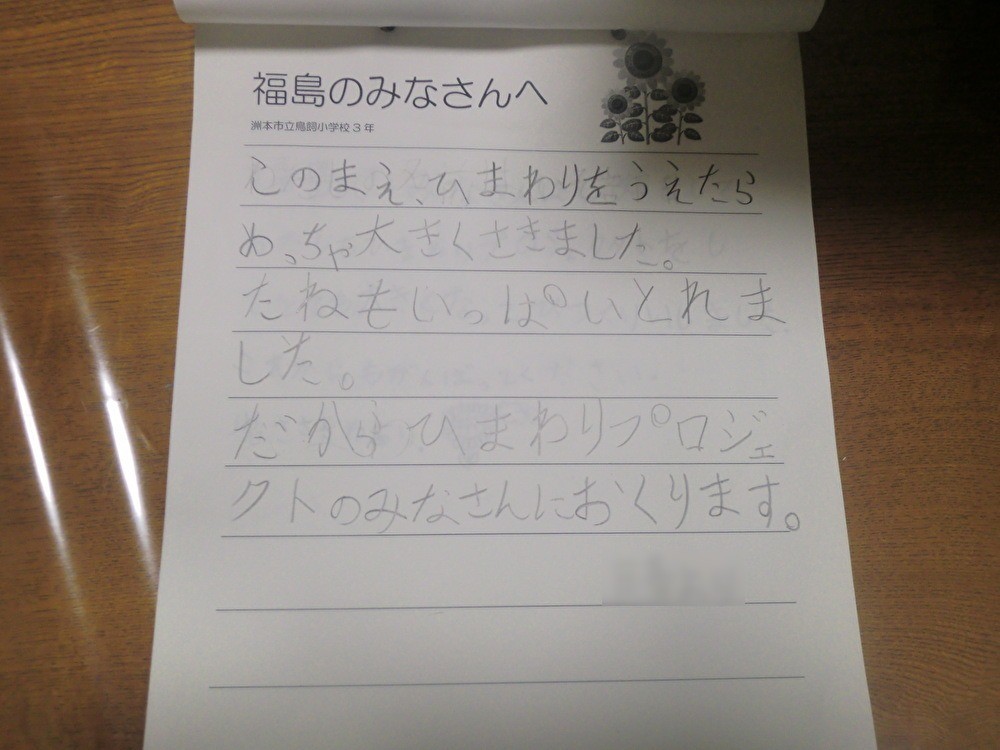 福島のみなさんへ
洲本市立鳥飼小学校3年
このまえ、ひまわりをうえたら
めっちゃ大きくさきました。
たねもいっぱいとれま
した。
だからひまわりプロジェ
クトのみなさんにおくります。